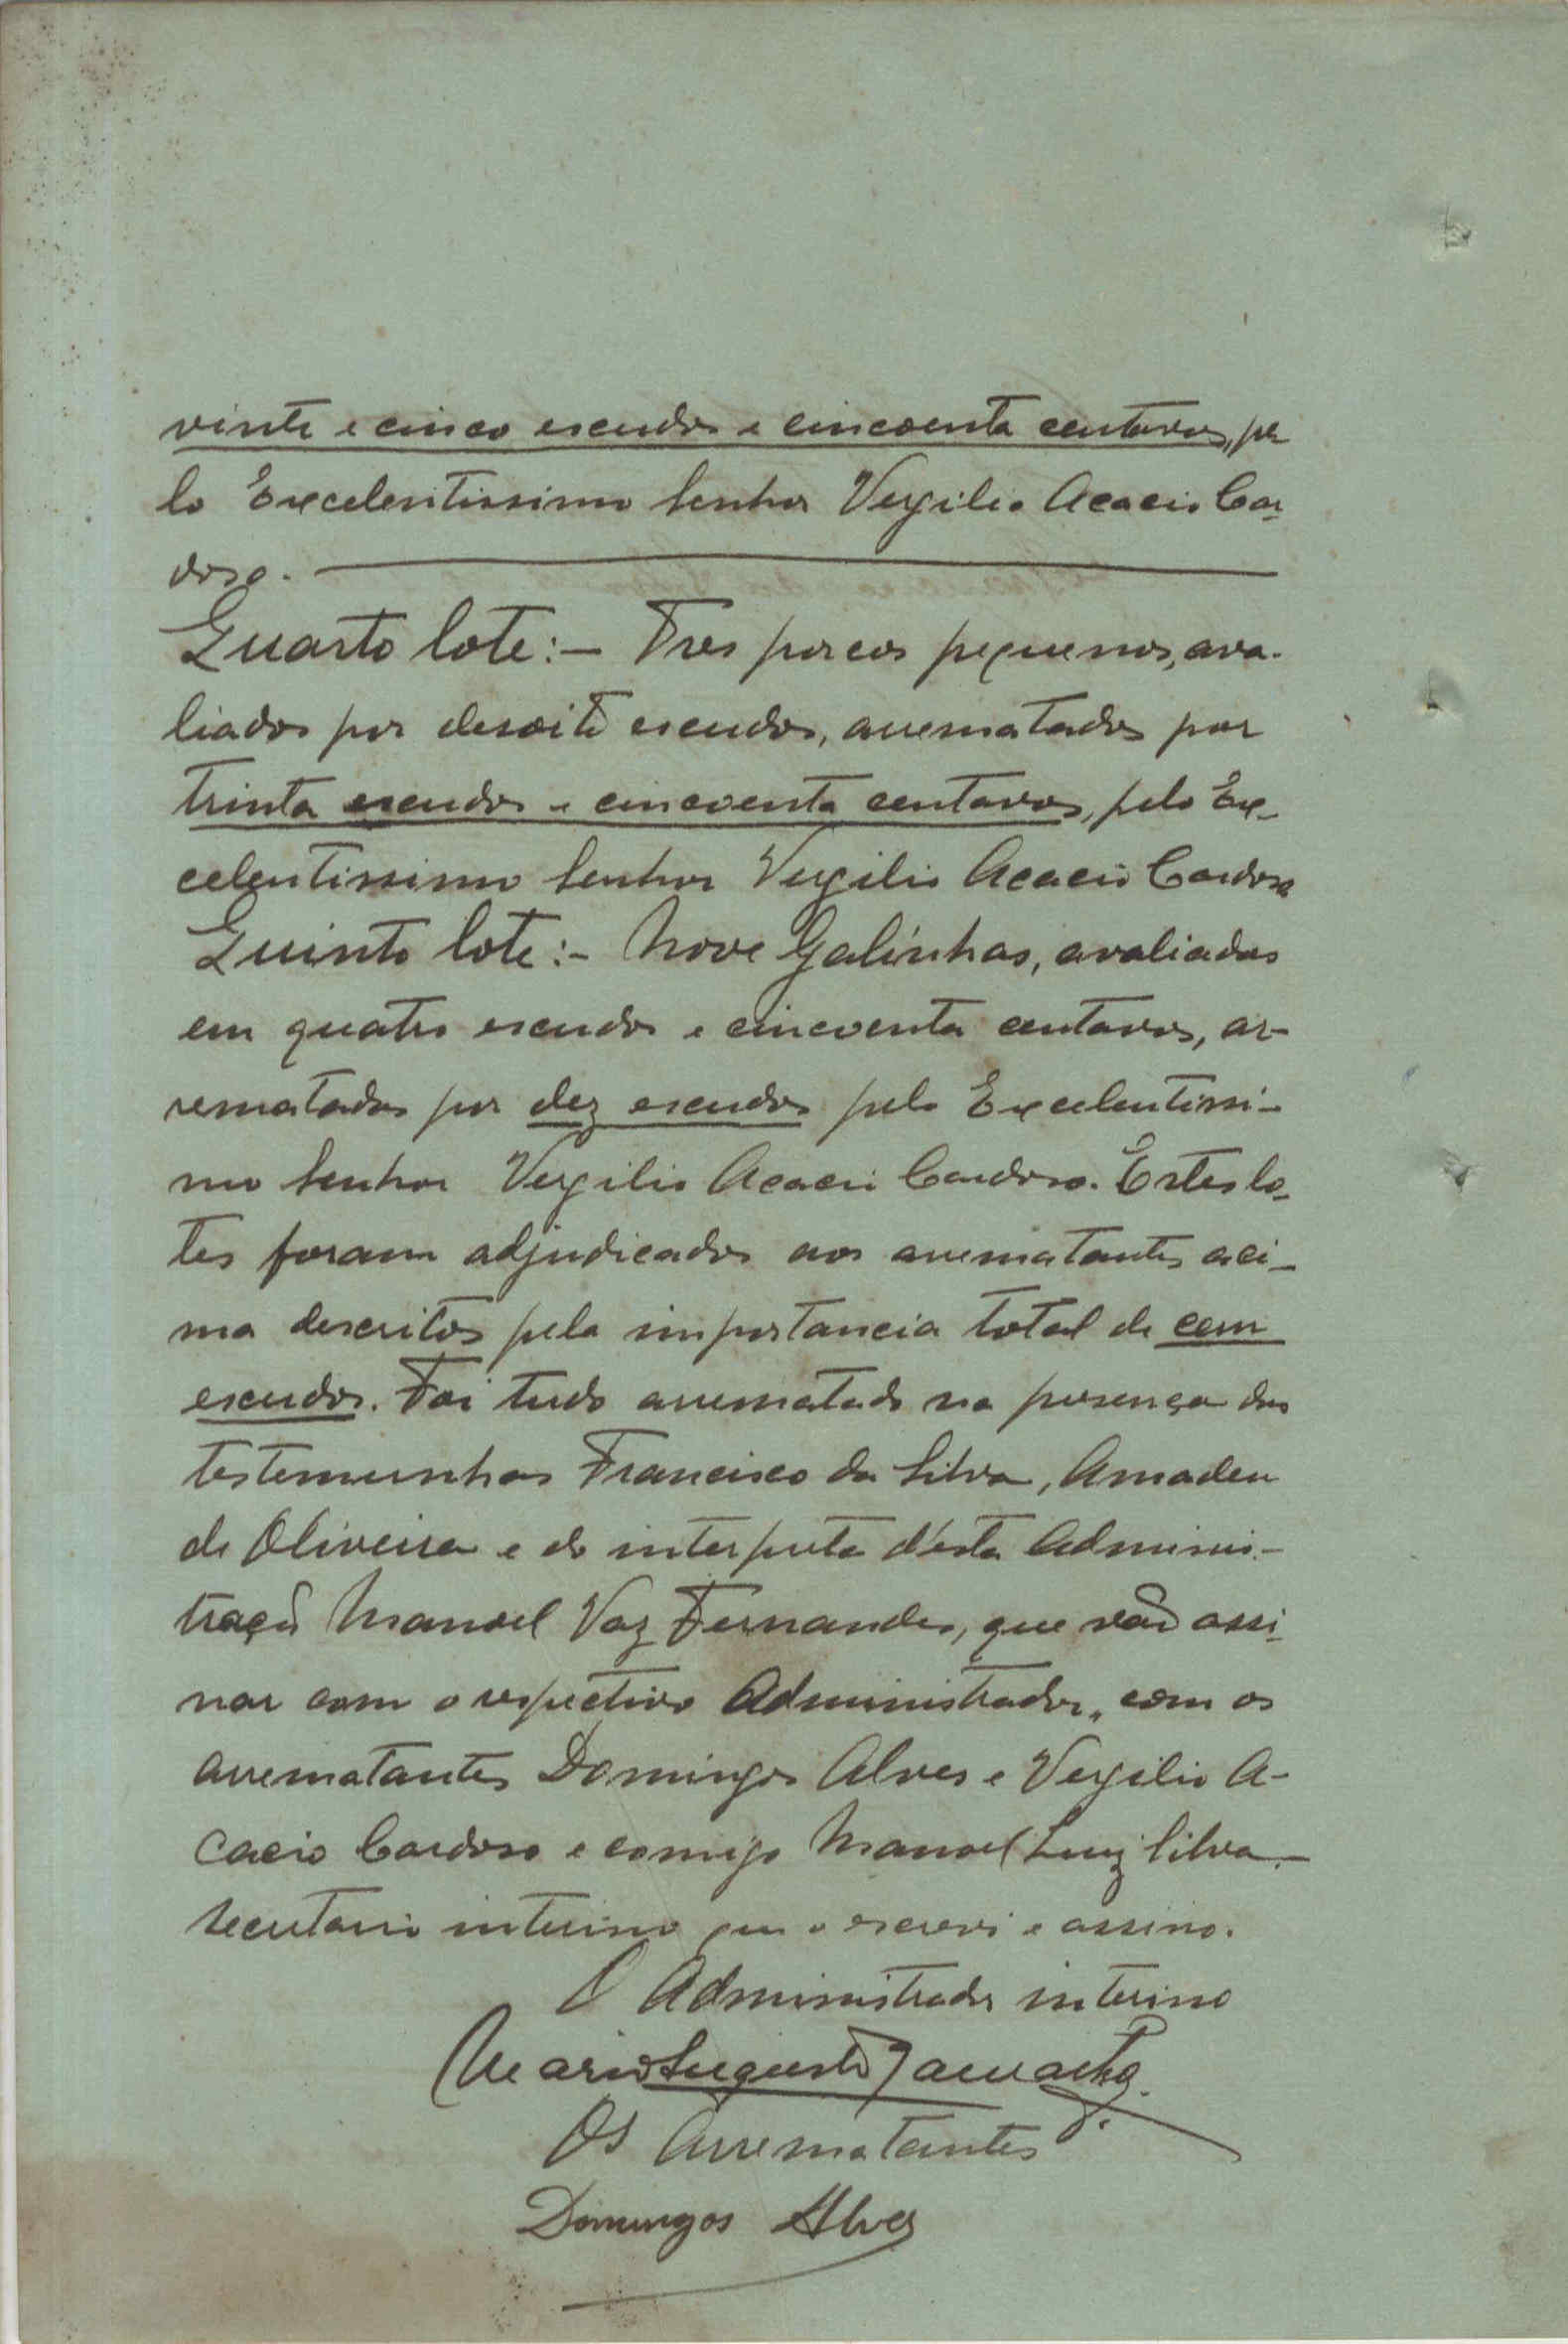 vinte e cinco escudos e cincoenta centavos, pe
lo Excelentissimo Senhor Vergilio Acacio Car-
doso.
Quarto lote:- Tres porcos pequenos, ava-
liados por desoito escudos, arrematados por
trinta escudos e cincoenta centavos, pelo Ex-
celentissimo Senhor Vergilio Acacio Cardoso
Quinto lote:- Nove Galinhas, avaliadas
em quatro escudos e cincoenta centavos, ar-
rematadas por dez escudos pelo Excelentissi-
mo Senhor Vergilio Acacio Cardoso. Estes lo-
tes foram adjudicados aos arrematantes aci-
ma descritos pela importancia total de cem
escudos. Foi tudo arrematado na presença das
testemunhas Francisco da Silva, Amadeu
de Oliveira e do interpreta d'esta Adminis-
tração Manoel Vaz Fernandes, que vão assi-
nar com o respectivo Administrador, com os
arrematantes Domingos Alves e Vergilio A-
cacio Cardoso e comigo Manoel Luiz Silva-
secretario interino que o escrevi e assino.
O Administrador interino
Mario Augusto
Os Arrematantes
Domingos Alves